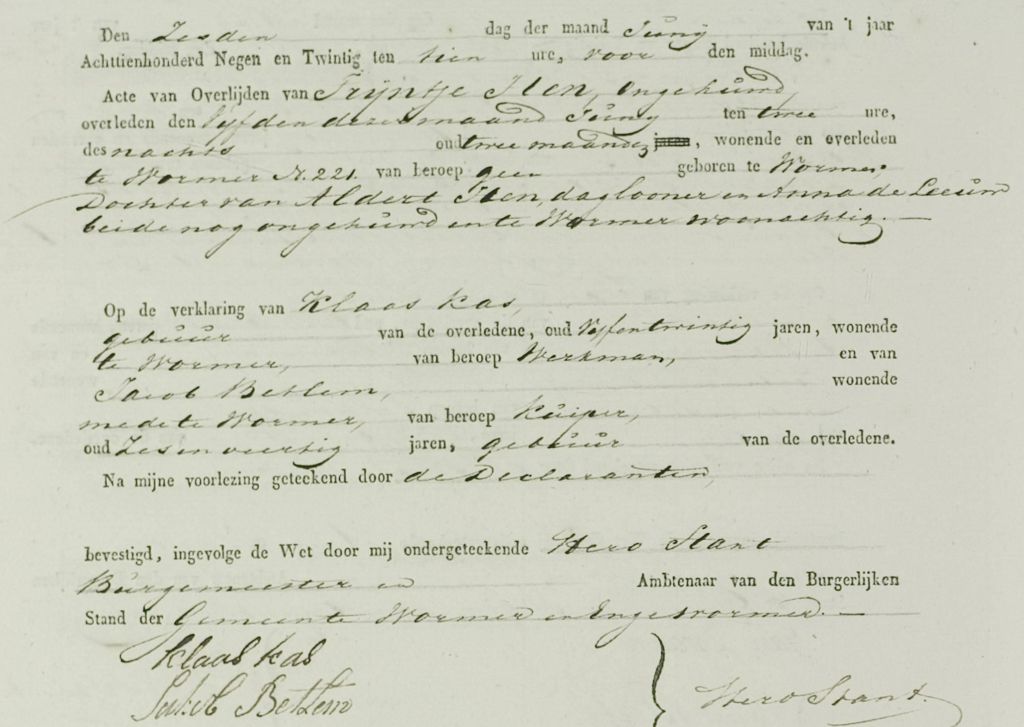 Den Zesden dag der maand Junÿ van 't jaar
Achttienhonderd Negen en Twintig ten tien ure, voor den middag.
Acte van Overlijden van Trÿntje Iten, Ongehuwd,
overleden den Vÿfden dezer maand Junÿ ten twee ure,
des nachts oud twee maanden jaren, wonende en overleden
te Wormer N. 221. van beroep geen geboren te Wormer.
Dochter van Aldert Iten, daglooner en Anna de Leeuw
beide nog ongehuwd en te Wormer woonachtig.
Op de verklaring van Klaas Kas,
gebuur van de overledene, oud Vÿfentwintig jaren, wonende
te Wormer, van beroep Werkman, en van
Jacob Betlem, wonende
mede te Wormer, van beroep Kuiper,
oud Zes en veertig jaren, gebuur van de overledene.
Na mijne voorlezing geteekend door de Declaranten,
bevestigd, ingevolge de Wet door mij ondergeteekende Hero Stant
Burgemeester en Ambtenaar van den Burgerlijken
Stand der Gemeente Wormer en Engewormer.
Klaas Kas
Jakob Betlem
Hero Stant.